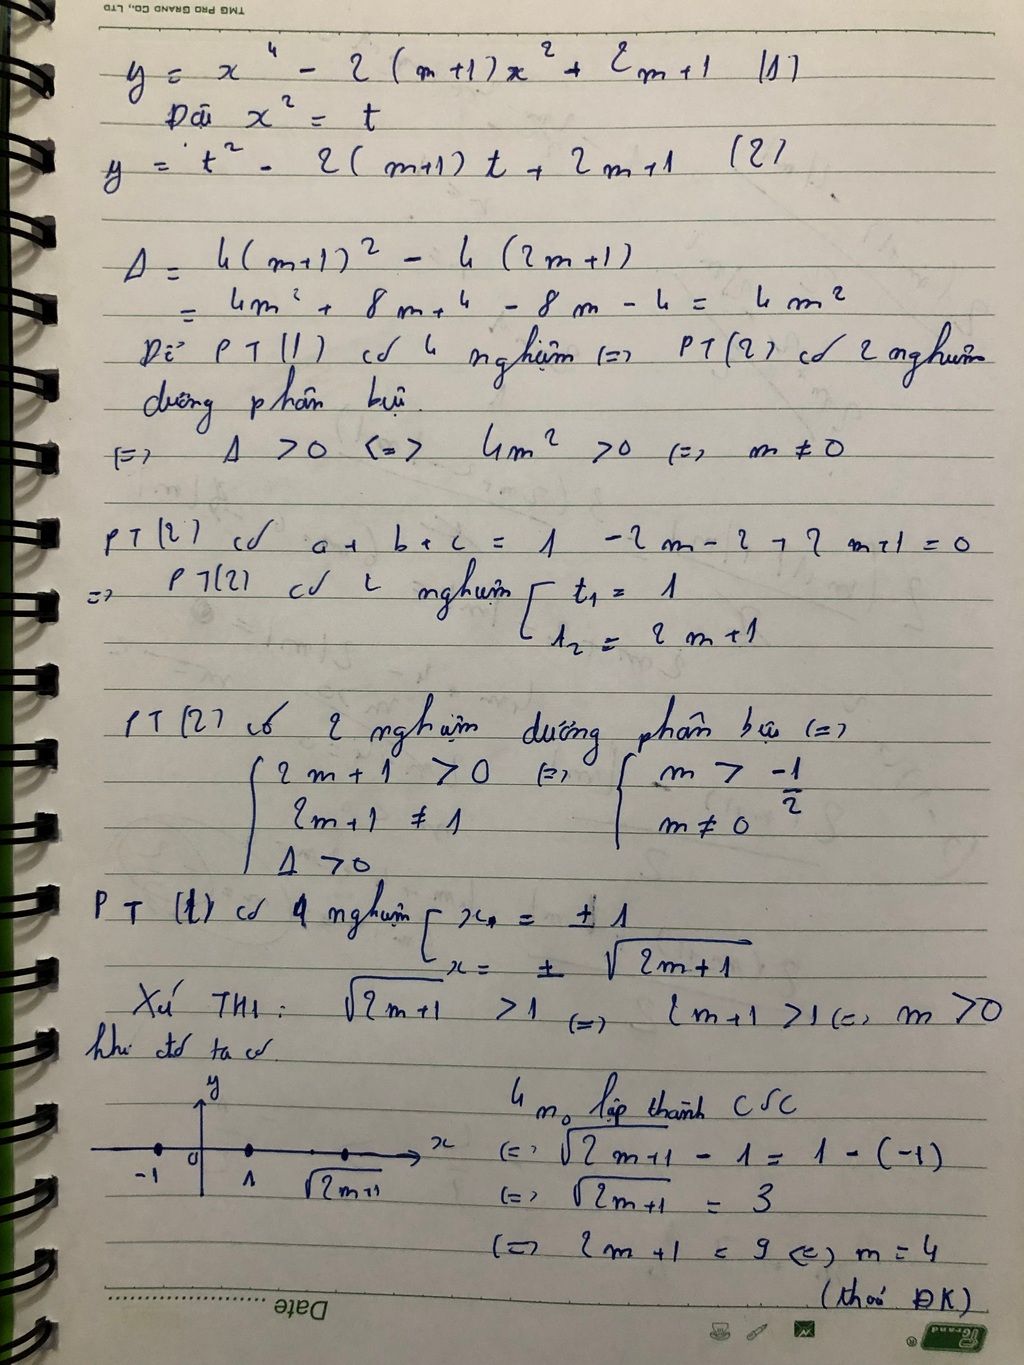 TMG PRO GRAND CO., LTD
y = x⁴ - 2(m+1)x² + 2m+1 (1)
Đặt x² = t
y = t² - 2(m+1)t + 2m+1 (2)
Δ = 4(m+1)² - 4(2m+1)
= 4m² + 8m+4 - 8m - 4 = 4m²
Để PT(1) có 4 nghiệm (=) PT(2) có 2 nghiệm
dương phân biệt.
(=) Δ > 0 <=> 4m² > 0 (=) m ≠ 0
PT(2) có a + b + c = 1 - 2m - 2 + 2m+1 = 0
=> PT(2) có 2 nghiệm [ t₁ = 1
t₂ = 2m+1
PT(2) có 2 nghiệm dương phân biệt (=)
{ 2m+1 > 0 (=) { m > -1/2
2m+1 ≠ 1 m ≠ 0
Δ > 0
PT (1) có 4 nghiệm [ x = ± 1
x = ± √2m+1
Xét TH1: √2m+1 > 1 (=) 2m+1 > 1 (=) m > 0
khi đó ta có.
y
4 n₀ lập thành CSC
x
0
-1 1 √2m+1
(=) √2m+1 - 1 = 1 - (-1)
(=) √2m+1 = 3
(=) 2m+1 = 9 (=) m = 4
(thoả ĐK)
Date
Grand